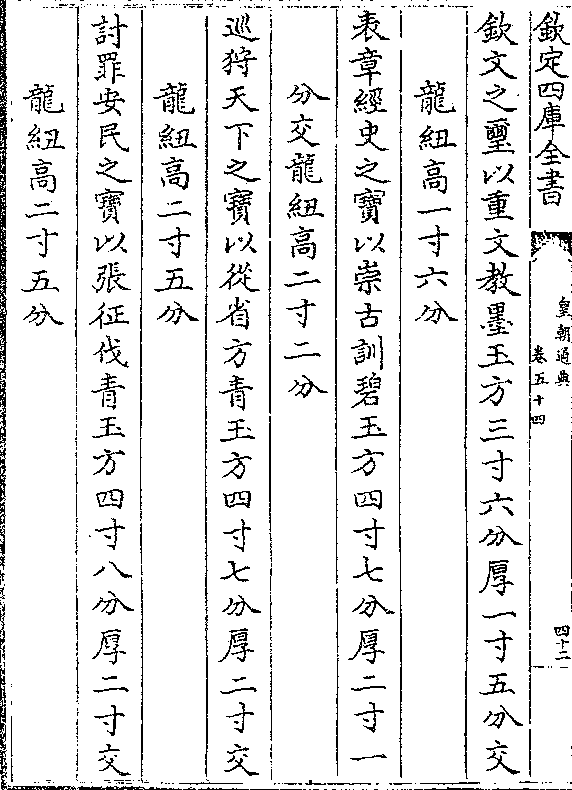 欽定四庫全書
皇朝通典
卷五十四
四十二
欽文之璽以重文教墨玉方三寸六分厚一寸五分交
龍紐高一寸六分
表章經史之寶以崇古訓碧玉方四寸七分厚二寸一
分交龍紐高二寸二分
巡狩天下之寶以從省方青玉方四寸七分厚二寸交
龍紐高二寸五分
討罪安民之寶以張征伐青玉方四寸八分厚二寸交
龍紐高二寸五分